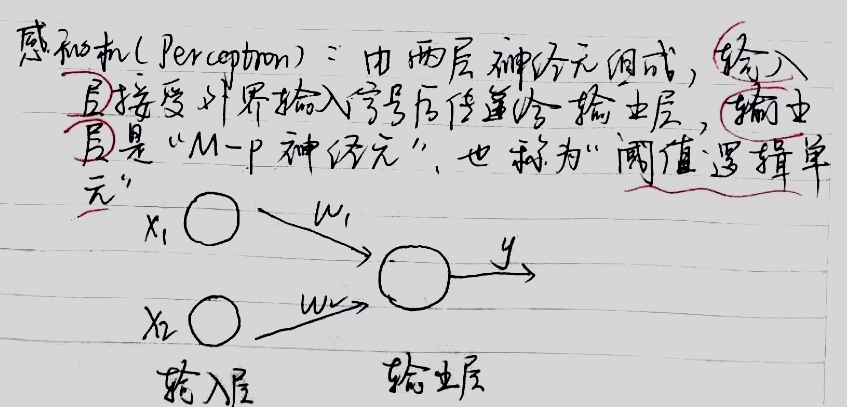 感知机(Perceptron)：由两层神经元组成，输入
层接受外界输入信号后传递给输出层，输出
层是“M-P神经元”，也称为“阈值逻辑单
元”
x₁ w₁
y
x₂ w₂
输入层 输出层